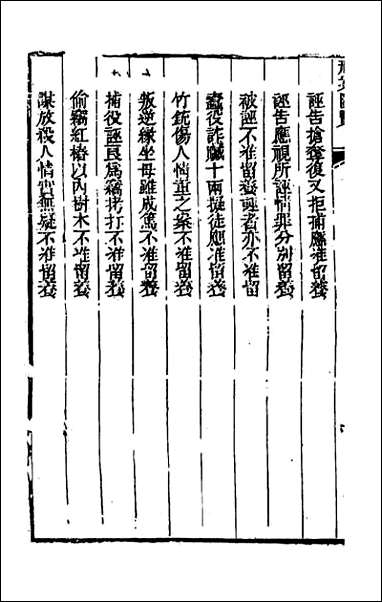 刑案匯覽
誣告搶奪復又拒捕應准留養
誣告應視所誣情罪分別留養
被誣不准留養誣者亦不准留
蠹役詐贓十兩擬徒應准留養
竹銃傷人情重之案不准留養
叛逆緣坐母雖成篤不准留養
捕役誣良爲竊拷打不准留養
偷竊紅樁以內樹木不准留養
謀故殺人情實無疑不准留養